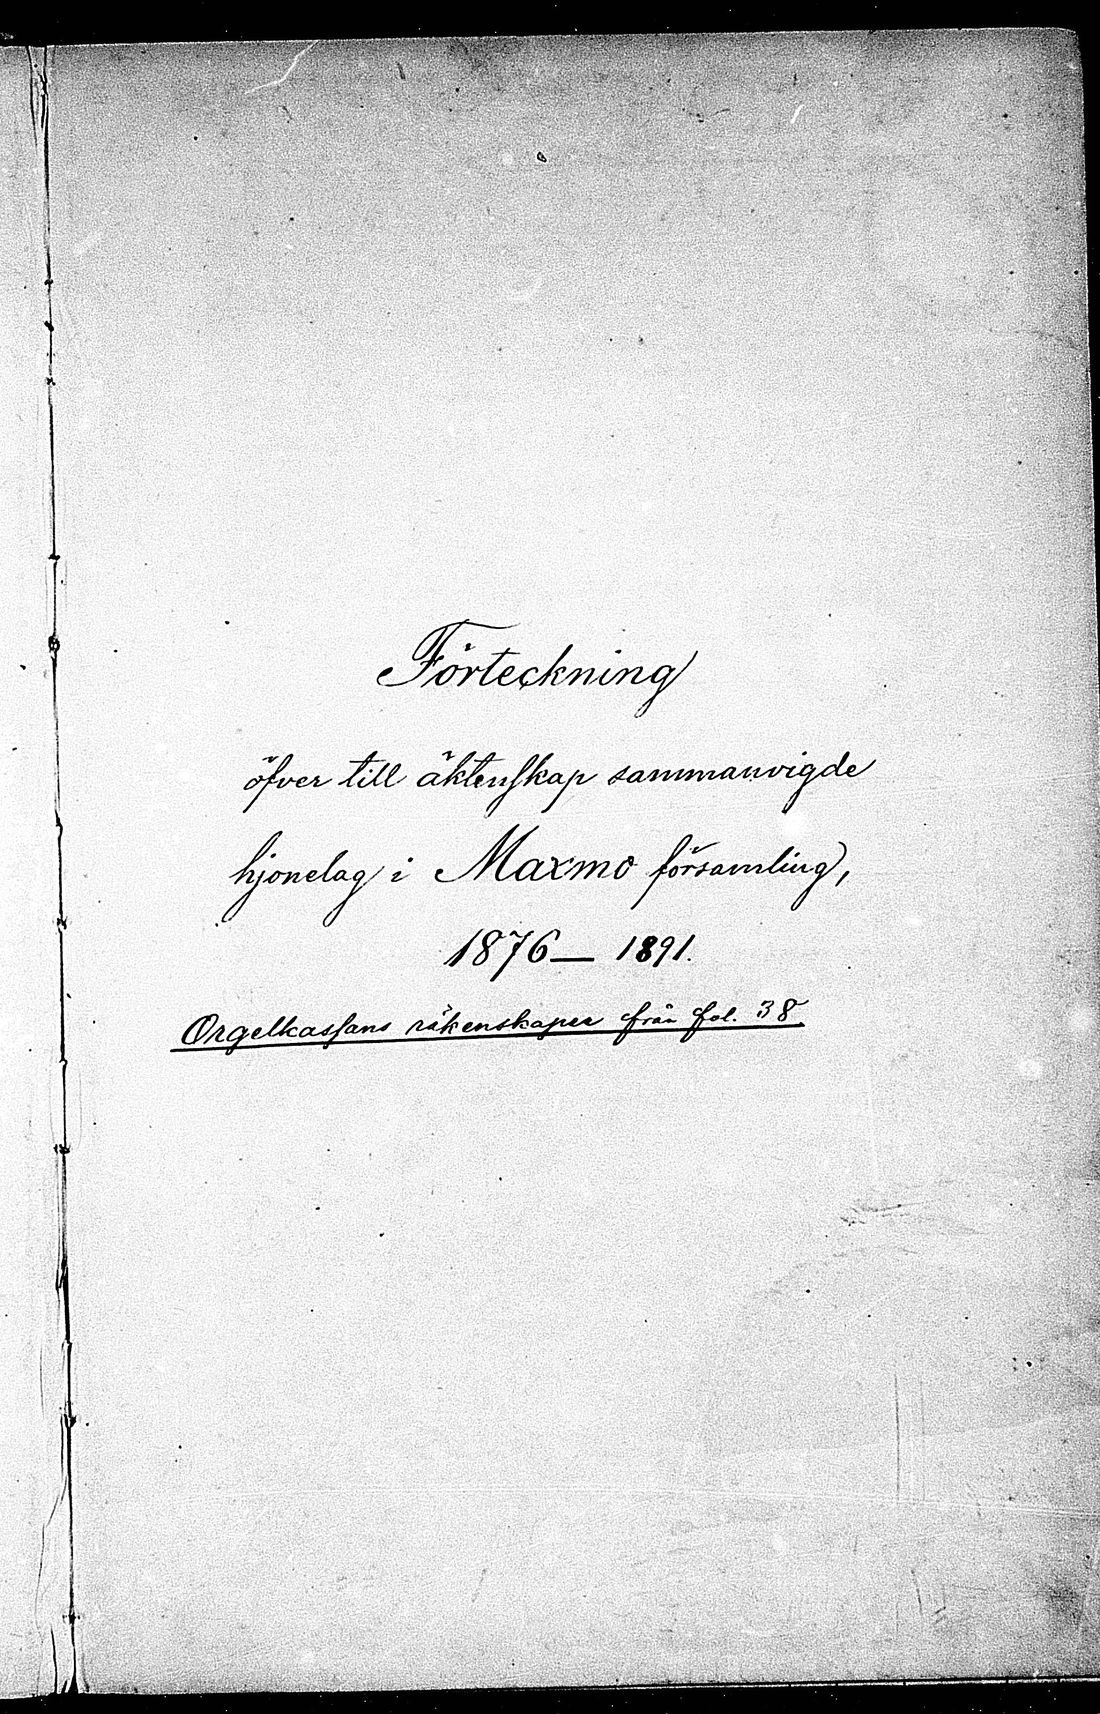 Förteckning
öfver till äktenskap sammanvigde
hjonelag i Maxmo församling,
1876— 1891.
Orgelkassans räkenskaper från fol. 38